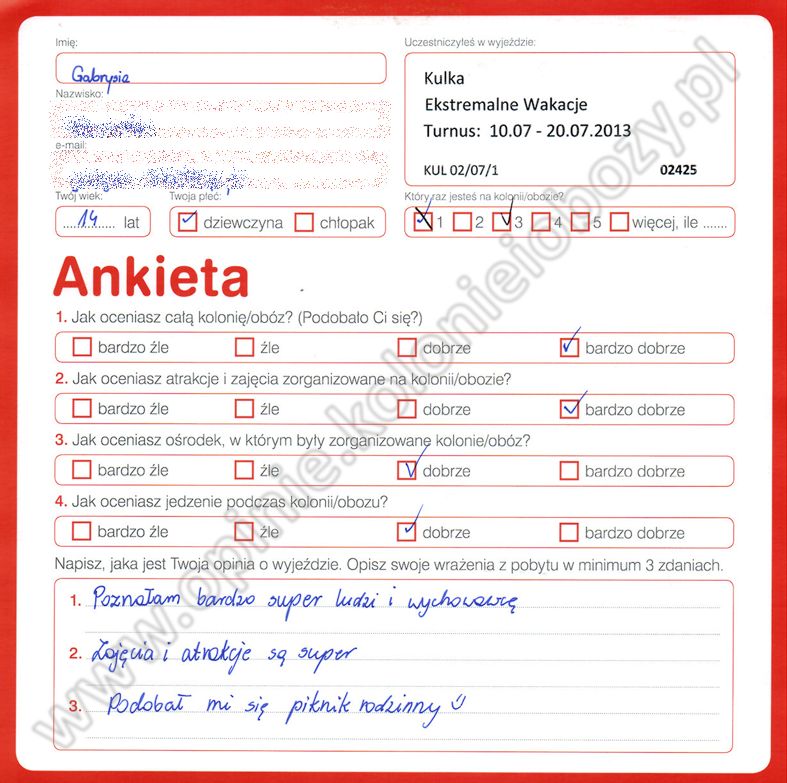 Imię:
Gabrysia
Nazwisko:
e-mail:
Twój wiek:
14 lat
Twoja płeć:
dziewczyna chłopak
Uczestniczyłeś w wyjeździe:
Kulka
Ekstremalne Wakacje
Turnus: 10.07 - 20.07.2013
KUL 02/07/1 02425
Który raz jesteś na kolonii/obozie?
1 2 3 4 5 więcej, ile .......
Ankieta
1. Jak oceniasz całą kolonię/obóz? (Podobało Ci się?)
bardzo źle źle dobrze bardzo dobrze
2. Jak oceniasz atrakcje i zajęcia zorganizowane na kolonii/obozie?
bardzo źle źle dobrze bardzo dobrze
3. Jak oceniasz ośrodek, w którym były zorganizowane kolonie/obóz?
bardzo źle źle dobrze bardzo dobrze
4. Jak oceniasz jedzenie podczas kolonii/obozu?
bardzo źle źle dobrze bardzo dobrze
Napisz, jaka jest Twoja opinia o wyjeździe. Opisz swoje wrażenia z pobytu w minimum 3 zdaniach.
1. Poznałam bardzo super ludzi i wychowawcę
2. Zajęcia i atrakcje są super
3. Podobał mi się piknik rodzinny
www.opinie.kolonieiobozy.pl